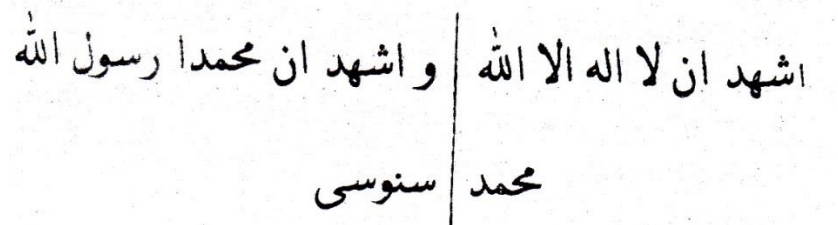 اشهد ان لا اله الا الله | و اشهد ان محمدا رسول الله
محمد | سنوسی